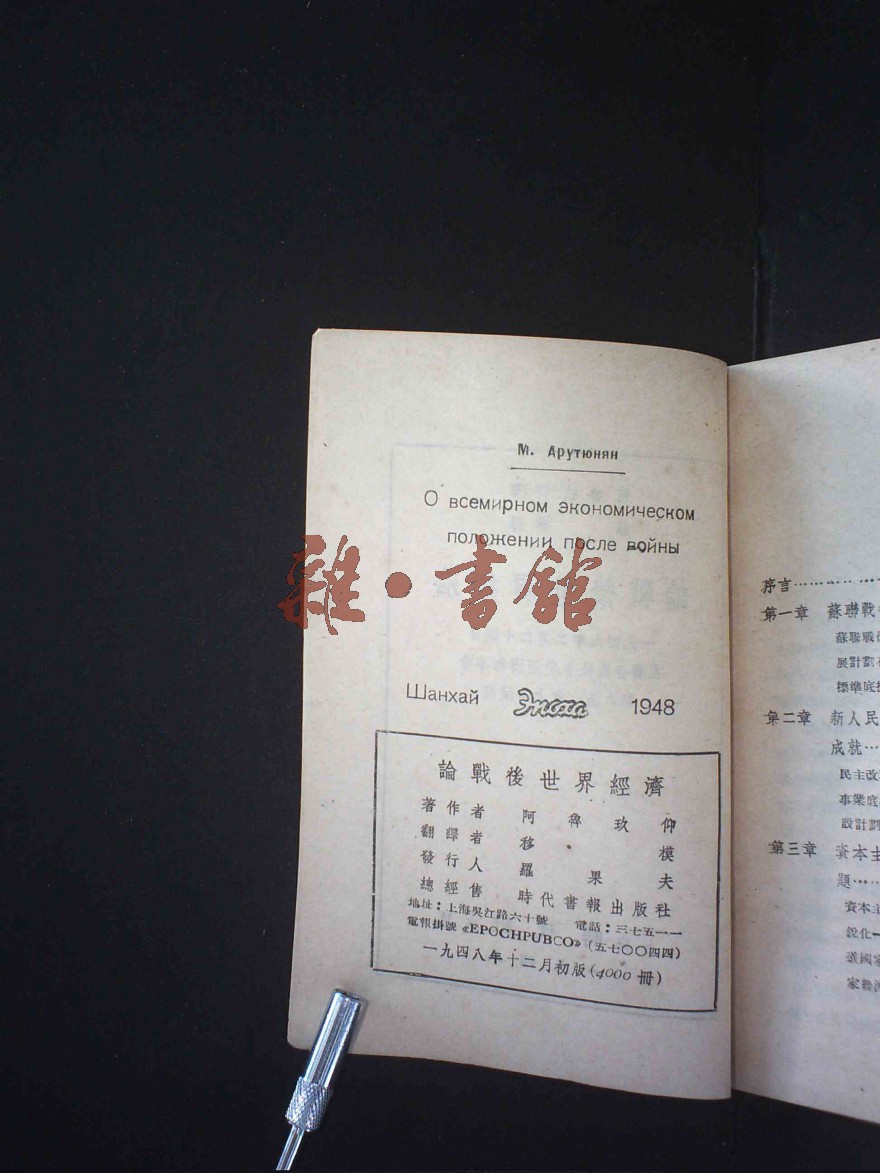 М. Арутюнян
О всемирном экономическом
положении после войны
雜·書館
Шанхай Эпоха 1948
論戰後世界經濟
著作者 阿魯玖仰
翻譯者 移模
發行人 羅果夫
總經售 時代書報出版社
地址：上海吳江路六十號 電話：三七五一一
電報掛號 «EPOCHPUBCO» (五七〇〇四四)
一九四八年十二月初版(4000 冊)
序言
第一章 蘇聯戰
蘇聯戰
展計劃
標準底
第二章 新人民
成就…
民主改
事業底
設計劃
第三章 資本主
題…
資本主
銳化一
義國家
家經濟